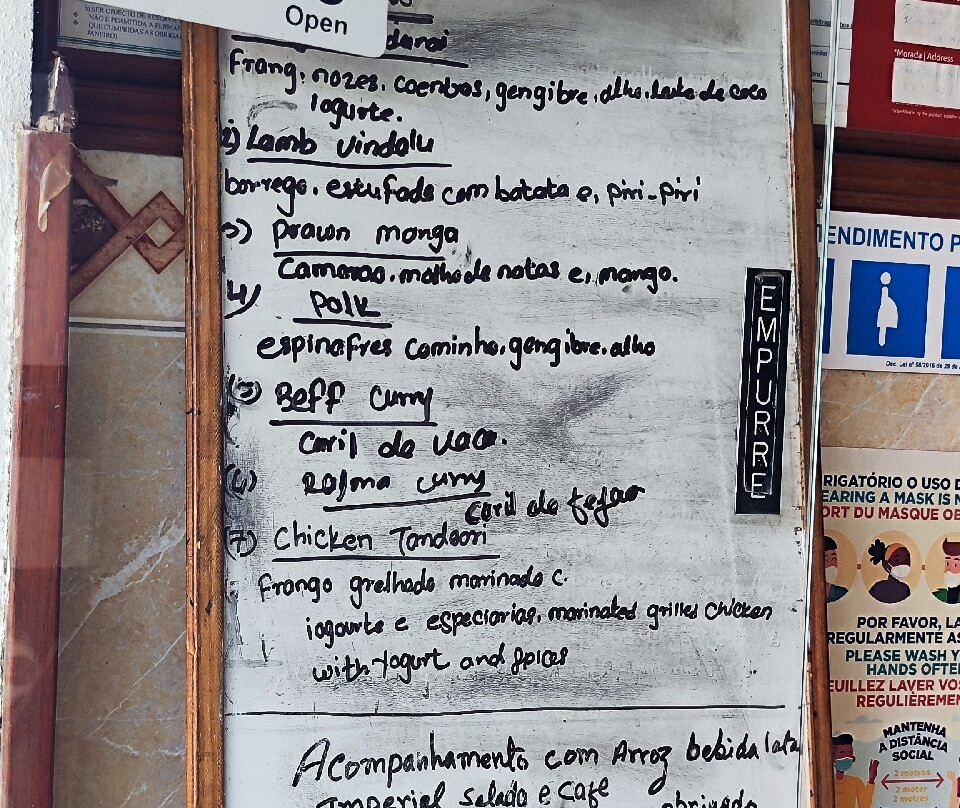 Open
Frang, nozes, coentros, gengibre, alho, leite de coco
iogurte.
Lamb vindalu
borrego, estufado com batata e, piri-piri
3) Prawn manga
Camarao, molho de natas e, mango.
4) Palk
espinafres cominho, gengibre, alho
(5) Beff curry
Caril de vaca.
(6) Rajma curry
Caril de fejao
(7) Chicken Tandoori
Frango grelhado marinado c.
iogourte e especiarias, marinated grilled chicken
with yogurt and spices
Acompanhamento com Arroz bebida lata
Imperial salada e cafe obrigado
EMPURRE
*Morada | Address
ENDIMENTO P
Dec. Lei nº 58/2016 de 29 de
RIGATÓRIO O USO D
EARING A MASK IS
ORT DU MASQUE OB
POR FAVOR, LA
REGULARMENTE AS
PLEASE WASH Y
HANDS OFTE
EUILLEZ LAVER VOS
REGULIÈREMEN
MANTENHA
A DISTÂNCIA
SOCIAL
2 metros
2 meter
2 mètres